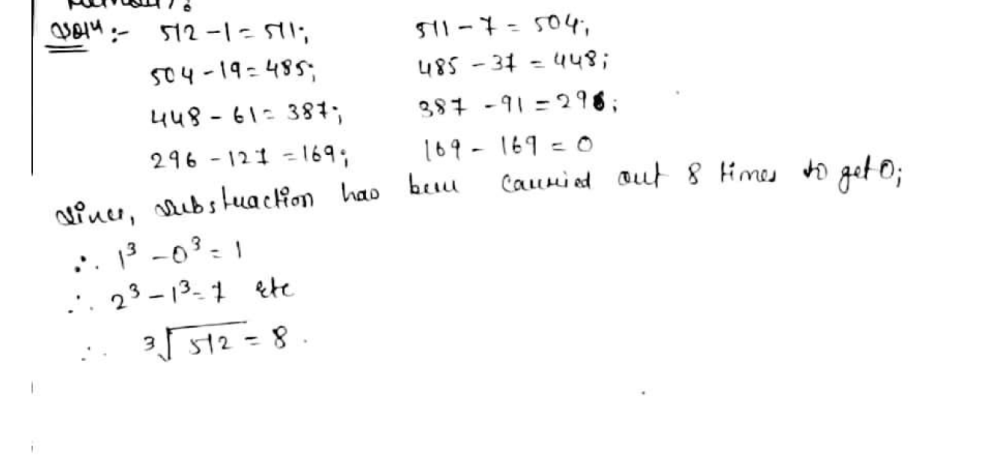 Soln :- 512 - 1 = 511; 511 - 7 = 504;
504 - 19 = 485; 485 - 37 = 448;
448 - 61 = 387; 387 - 91 = 296;
296 - 127 = 169; 169 - 169 = 0
Since, substraction has been carried out 8 times to get 0;
∴ 1³ - 0³ = 1
∴ 2³ - 1³ = 7 etc
∴ ³√512 = 8.